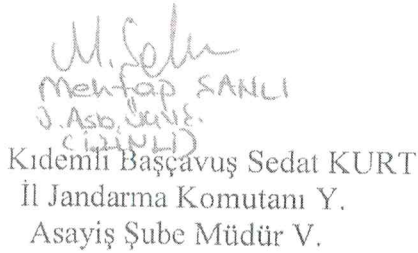 Mehtap SANLI
J.Asb.
(İZİNLİ)
Kıdemli Başçavuş Sedat KURT
İl Jandarma Komutanı Y.
Asayiş Şube Müdür V.